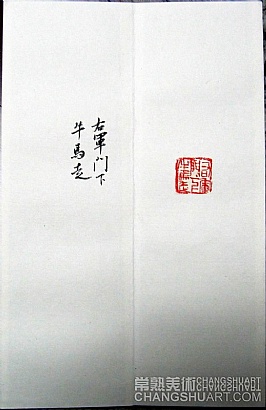 右軍门下
牛馬走
右軍門下牛馬走
常熟美術CHANGSHUART
CHANGSHUART.COM